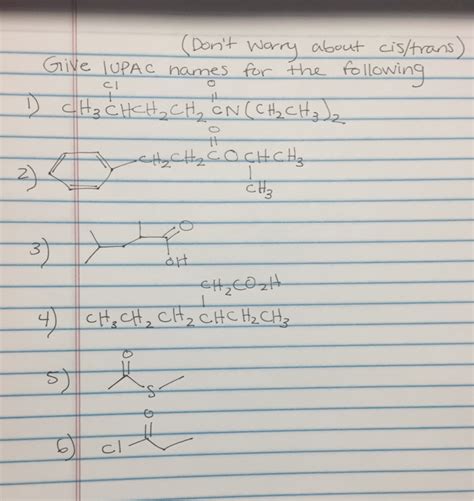 (Don't worry about cis/trans)
Give IUPAC names for the following
Cl O
1) CH3CHCH2CH2CN(CH2CH3)2
O
2) CH2CH2COCHCH3
CH3
3) O
OH
CH2CO2H
4) CH3CH2CH2CHCH2CH3
O
5) S
O
6) Cl